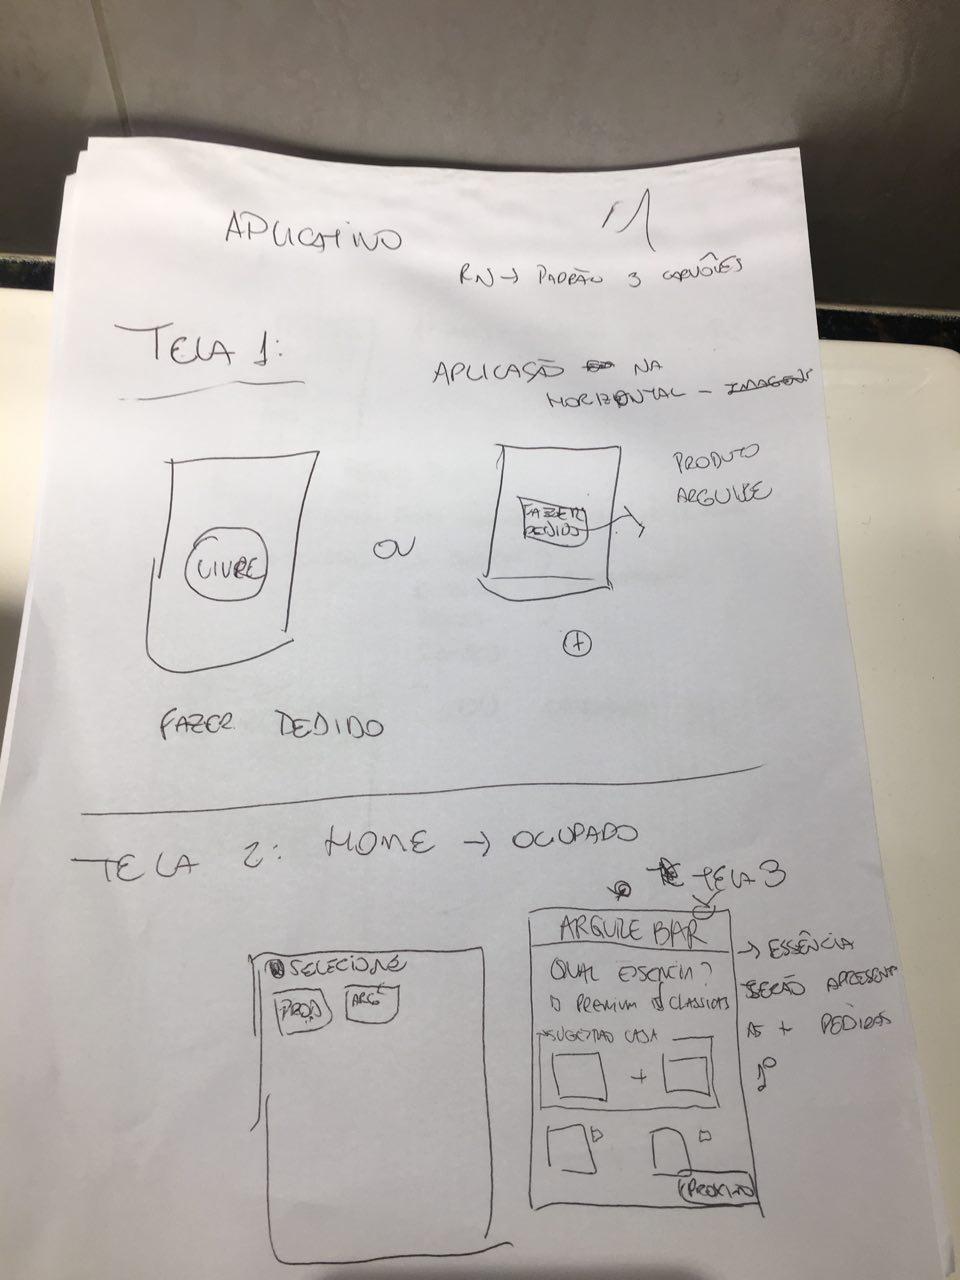 APLICATIVO
RN → PADRÃO 3 CARVÔES
TELA 1:
APLICAÇÃO NA
HORIZONTAL - IMAGENS
LIVRE
OU
FAZER
PEDIDO
PRODUTO
ARGUILE
+
FAZER PEDIDO
TELA 2: HOME → OCUPADO
TELA 3
SELECIONE
PROD
ARG
ARGUILE BAR
QUAL ESSENCIA?
PREMIUM CLASSICAS
SUGESTAO CASA
+
PROXIMO
→ ESSÊNCIA
SERÃO APRESENT
AS + PEDIDAS
1º